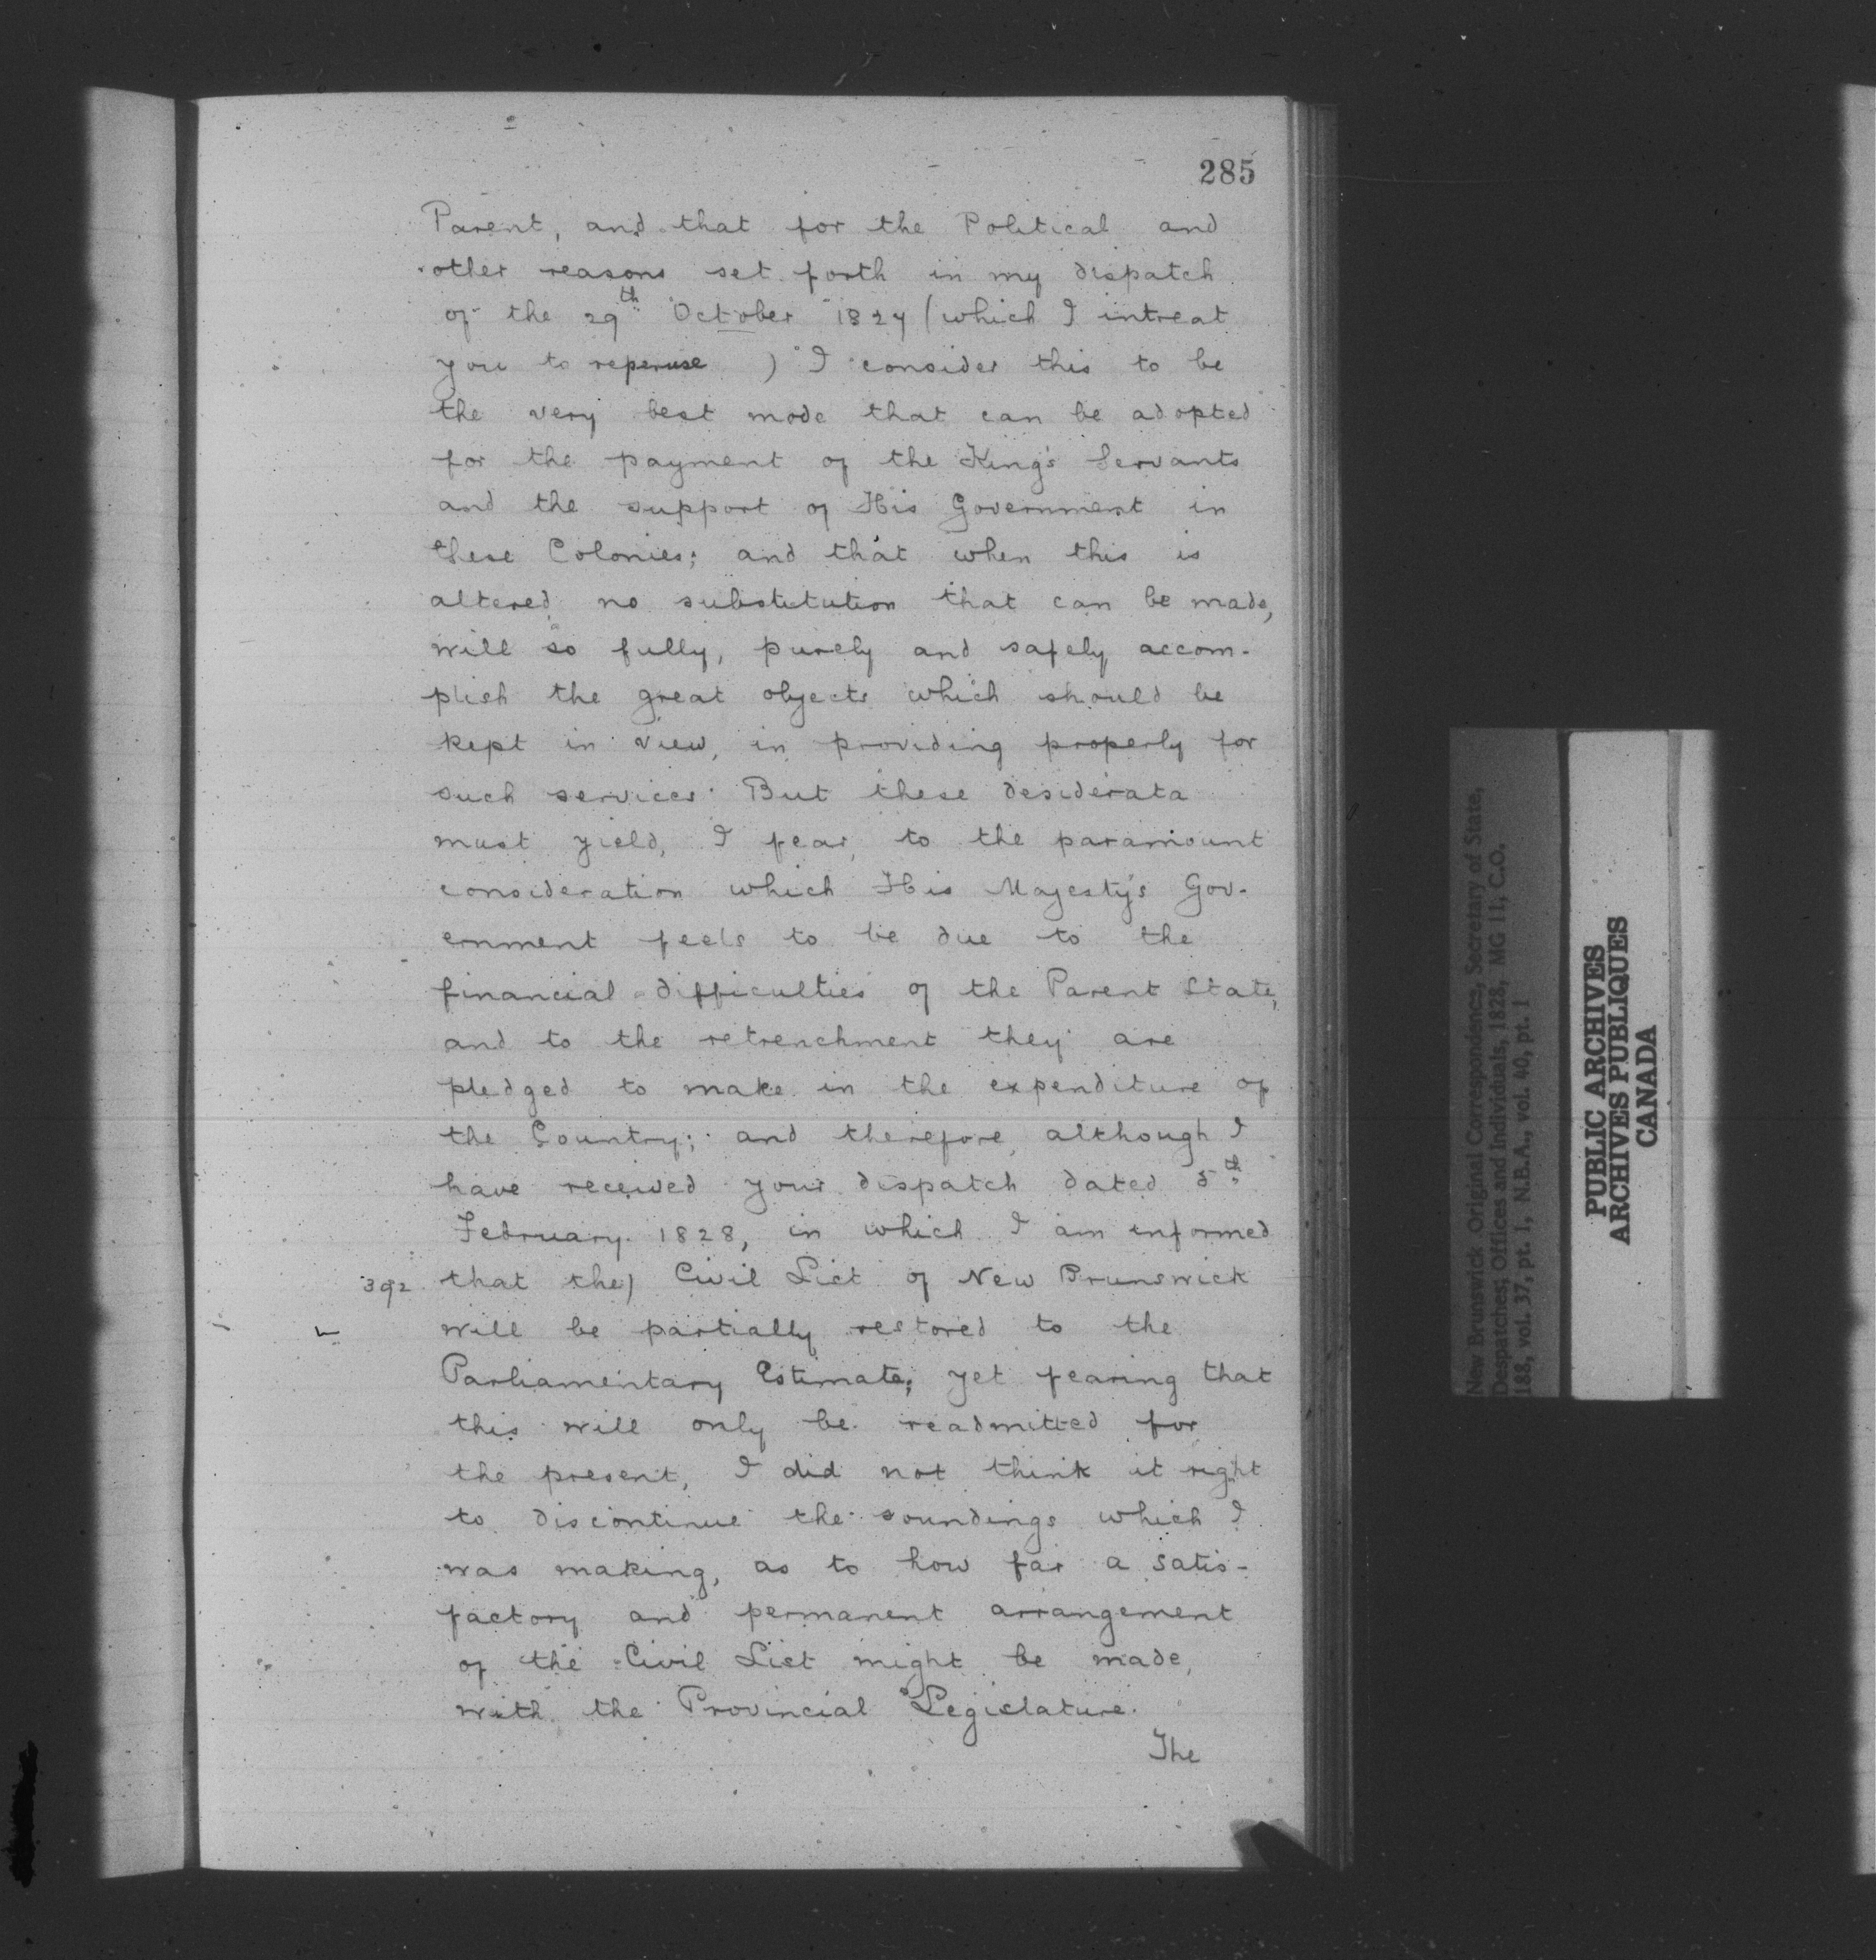 285
Parent, and that for the Political and
other reasons set forth in my dispatch
of the 29th October 1827 (which I intreat
you to reperuse ) I consider this to be
the very best mode that can be adopted
for the payment of the King's Servants
and the support of His Government in
these Colonies; and that when this is
altered, no substitution that can be made,
will so fully, purely and safely accom-
plish the great objects which should be
kept in view, in providing properly for
such services. But these desiderata
must yield, I fear, to the paramount
consideration which His Majesty's Gov-
ernment feels to be due to the
financial difficulties of the Parent State,
and to the retrenchment they are
pledged to make in the expenditure of
the Country; and therefore, although I
have received your dispatch dated 5th
February 1828, in which I am informed
392 that the) Civil List of New Brunswick
will be partially restored to the
Parliamentary Estimate; yet fearing that
this will only be readmitted for
the present, I did not think it right
to discontinue the soundings which I
was making, as to how far a satis-
factory and permanent arrangement
of the Civil List might be made,
with the Provincial Legislature.
The
New Brunswick Original Correspondence, Secretary of State,
Despatches; Offices and Individuals, 1828, MG 11, C.O.
188, vol. 37, pt. 1, N.B.A., vol. 40, pt. 1
PUBLIC ARCHIVES
ARCHIVES PUBLIQUES
CANADA